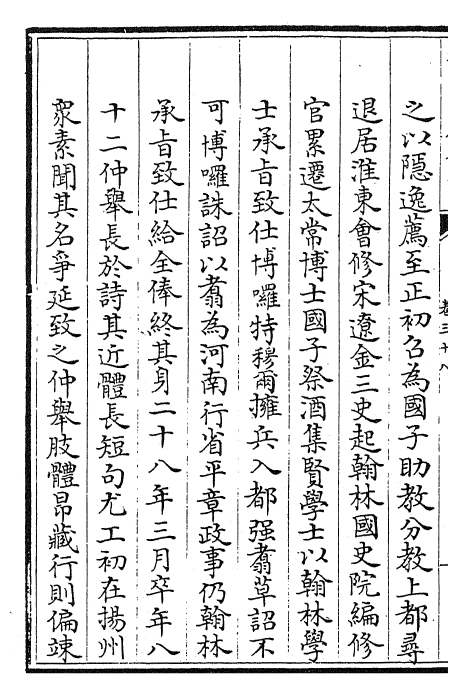 卷三十八
之以隱逸薦至正初召為國子助教分教上都尋
退居淮東會修宋遼金三史起翰林國史院編修
官累遷太常博士國子祭酒集賢學士以翰林學
士承旨致仕博囉特穆爾擁兵入都强翥草詔不
可博囉誅詔以翥為河南行省平章政事仍翰林
承旨致仕給全俸終其身二十八年三月卒年八
十二仲舉長於詩其近體長短句尤工初在揚州
衆素聞其名爭延致之仲舉肢體昂藏行則偏竦